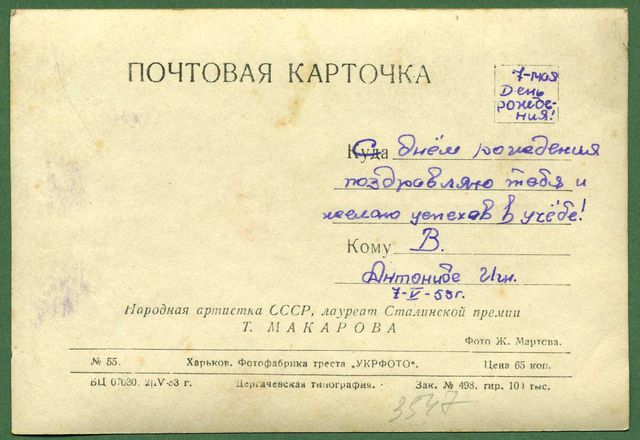 ПОЧТОВАЯ КАРТОЧКА
7-мая
День
рожде-
ния!
Куда С днём рождения
поздравляю тебя и
желаю успехов в учёбе!
Кому В.
7-V-53г.
Народная артистка СССР, лауреат Сталинской премии
Т. МАКАРОВА
Фото Ж. Мартова.
№ 55. Харьков. Фотофабрика треста „УКРФОТО“. Цена 65 коп.
БЦ 07030. Дергачевская типография. Зак. № 498. тир. 10 тыс.
3547